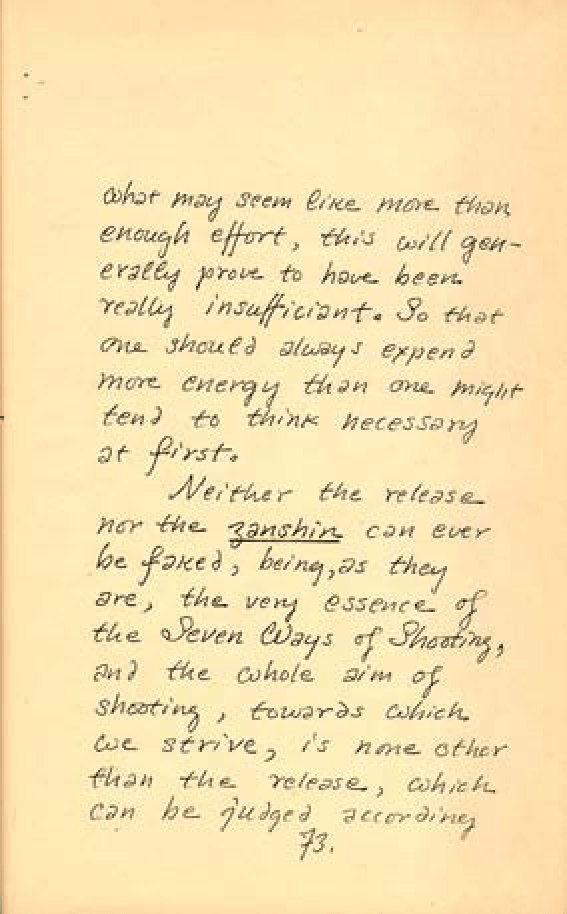 what may seem like more than
enough effort, this will gen-
erally prove to have been
really insufficiant. So that
one should always expend
more energy than one might
tend to think necessary
at first.
Neither the release
nor the zanshin can ever
be faked, being, as they
are, the very essence of
the Seven Ways of Shooting,
and the whole aim of
shooting, towards which
we strive, is none other
than the release, which
can be judged according
73.